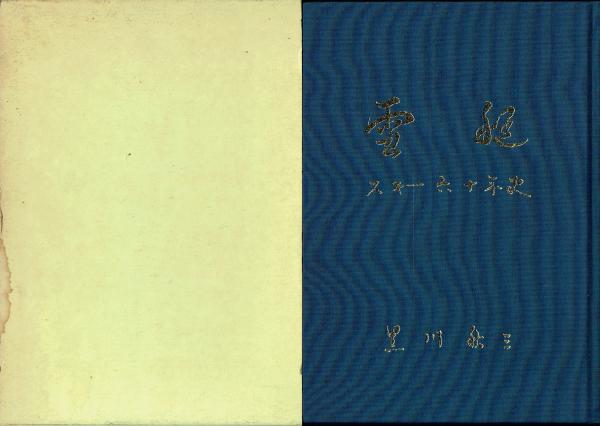 雪艇
スキー六十年史
黒川 三